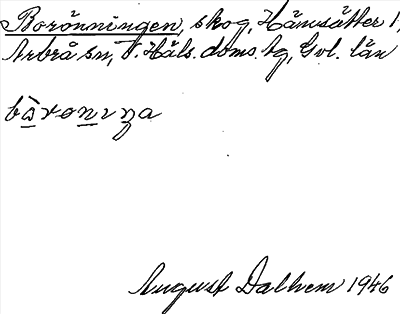 Borönningen, skog, Hämsätter 1,
Arbrå sn, V. Häls. doms. tg, Gvl. län
bàronıŋa
August Dalhem 1946